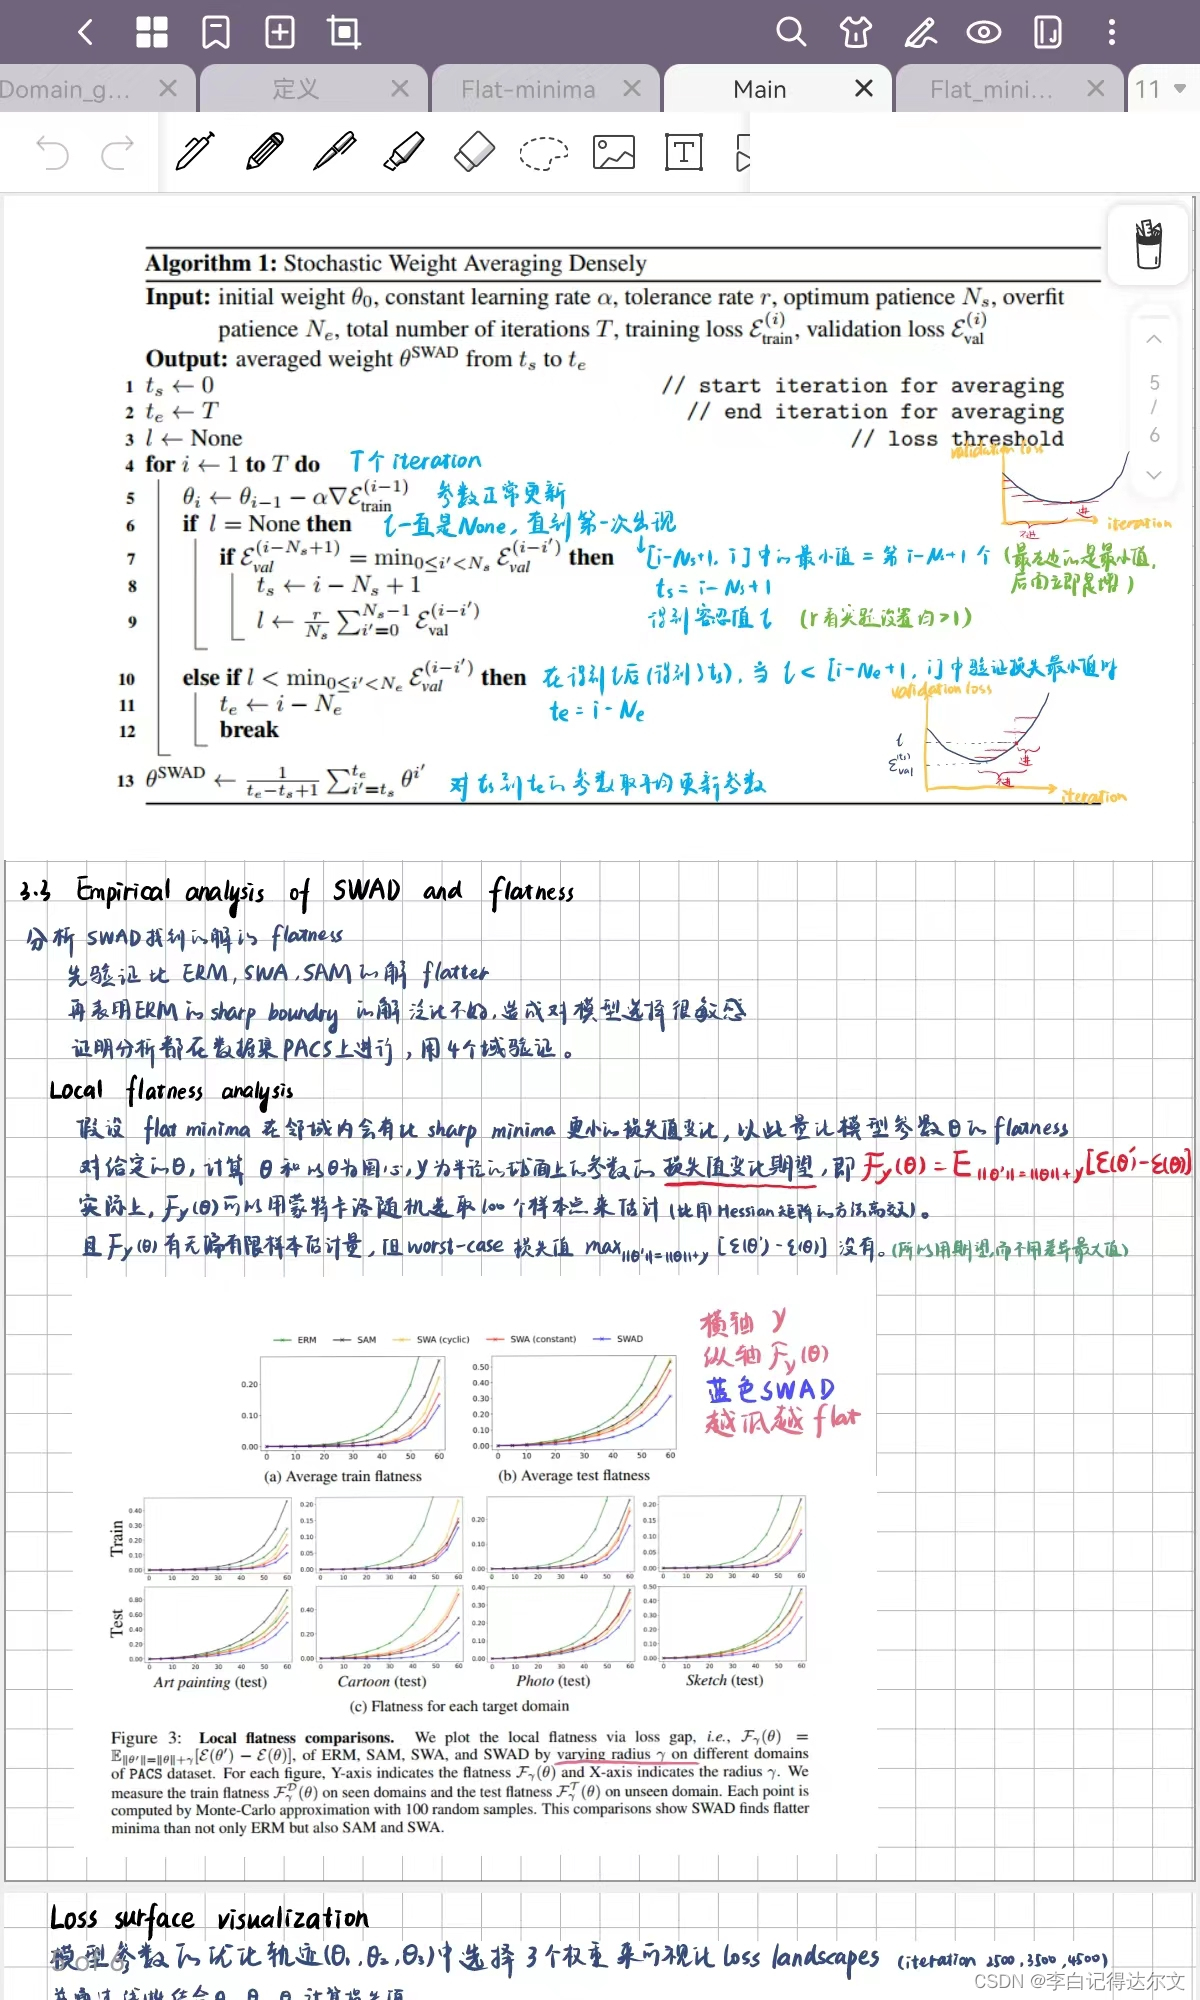 Domain_g...
定义
Flat-minima
Main
Flat_mini...
11
Algorithm 1: Stochastic Weight Averaging Densely
Input: initial weight θ₀, constant learning rate α, tolerance rate r, optimum patience Nₛ, overfit
patience Nₑ, total number of iterations T, training loss ℰ_train^(i), validation loss ℰ_val^(i)
Output: averaged weight θ^SWAD from tₛ to tₑ
1 tₛ ← 0 // start iteration for averaging
2 tₑ ← T // end iteration for averaging
3 l ← None // loss threshold
4 for i ← 1 to T do T个 iteration
5 θᵢ ← θᵢ₋₁ − α∇ℰ_train^(i−1) 参数正常更新
6 if l = None then l一直是None,直到第一次出现
7 if ℰ_val^(i−Nₛ+1) = min_{0≤i'<Nₛ} ℰ_val^(i−i') then [i-Ns+1, i]中的最小值 = 第i-Ns+1个 (最左边的是最小值,
后面立即是增)
8 tₛ ← i − Nₛ + 1 ts = i - Ns + 1
9 l ← r/Nₛ ∑_{i'=0}^{Nₛ−1} ℰ_val^(i−i') 得到容忍值 l (r看实验设置均>1)
10 else if l < min_{0≤i'<Nₑ} ℰ_val^(i−i') then 在得到l后(得到ts), 当 l < [i-Ne+1, i]中验证损失最小值时
11 tₑ ← i − Nₑ te = i - Ne
12 break
13 θ^SWAD ← 1/(tₑ−tₛ+1) ∑_{i'=tₛ}^{tₑ} θ^{i'} 对ts到te的参数取平均更新参数
validation loss
iteration
validation loss
l
ℰ_val^(ts)
iteration
5
/
6
3.3 Empirical analysis of SWAD and flatness
分析 SWAD找到的解的 flatness
先验证比 ERM, SWA, SAM的解 flatter
再表明ERM的sharp boundry 的解泛化不好,造成对模型选择很敏感
证明分析都在数据集PACS上进行,用4个域验证。
Local flatness analysis
假设 flat minima 在邻域内会有比 sharp minima 更小的损失值变化,以此量化模型参数θ的 flatness
对给定的θ,计算 θ和以θ为圆心,γ为半径的球面上的参数的 损失值变化期望,即 Fγ(θ) = E_{||θ'||=||θ||+γ}[ℰ(θ')-ℰ(θ)]
实际上,Fγ(θ)可以用蒙特卡洛随机选取100个样本点来估计(比用Hessian矩阵的方法高效)。
且Fγ(θ)有无偏有限样本估计量,但worst-case 损失值 max_{||θ'||=||θ||+γ}[ℰ(θ')-ℰ(θ)] 没有。(所以用期望,而不用差异最大值)
ERM SAM SWA (cyclic) SWA (constant) SWAD
横轴 γ
纵轴 Fγ(θ)
蓝色SWAD
越低越flat
0.20
0.10
0.00
0 10 20 30 40 50 60
0.50
0.40
0.30
0.20
0.10
0.00
0 10 20 30 40 50 60
(a) Average train flatness
(b) Average test flatness
Train
0.40
0.30
0.20
0.10
0.00
0 10 20 30 40 50 60
0.20
0.15
0.10
0.05
0.00
0 10 20 30 40 50 60
0.20
0.10
0.00
0 10 20 30 40 50 60
0.20
0.15
0.10
0.05
0.00
0 10 20 30 40 50 60
Test
0.80
0.60
0.40
0.20
0.00
0 10 20 30 40 50 60
0.40
0.20
0.00
0 10 20 30 40 50 60
0.40
0.30
0.20
0.10
0.00
0 10 20 30 40 50 60
0.50
0.40
0.30
0.20
0.10
0.00
0 10 20 30 40 50 60
Art painting (test)
Cartoon (test)
Photo (test)
Sketch (test)
(c) Flatness for each target domain
Figure 3: Local flatness comparisons. We plot the local flatness via loss gap, i.e., ℱγ(θ) =
𝔼_{‖θ'‖=‖θ‖+γ}[ℰ(θ') − ℰ(θ)], of ERM, SAM, SWA, and SWAD by varying radius γ on different domains
of PACS dataset. For each figure, Y-axis indicates the flatness ℱγ(θ) and X-axis indicates the radius γ. We
measure the train flatness ℱγ^𝒟(θ) on seen domains and the test flatness ℱγ^𝒯(θ) on unseen domain. Each point is
computed by Monte-Carlo approximation with 100 random samples. This comparisons show SWAD finds flatter
minima than not only ERM but also SAM and SWA.
Loss surface visualization
模型参数的优化轨迹(θ₁,θ₂,θ₃)中选择3个权重来可视化 loss landscapes (iteration 2500,3500,4500)
CSDN @李白记得达尔文